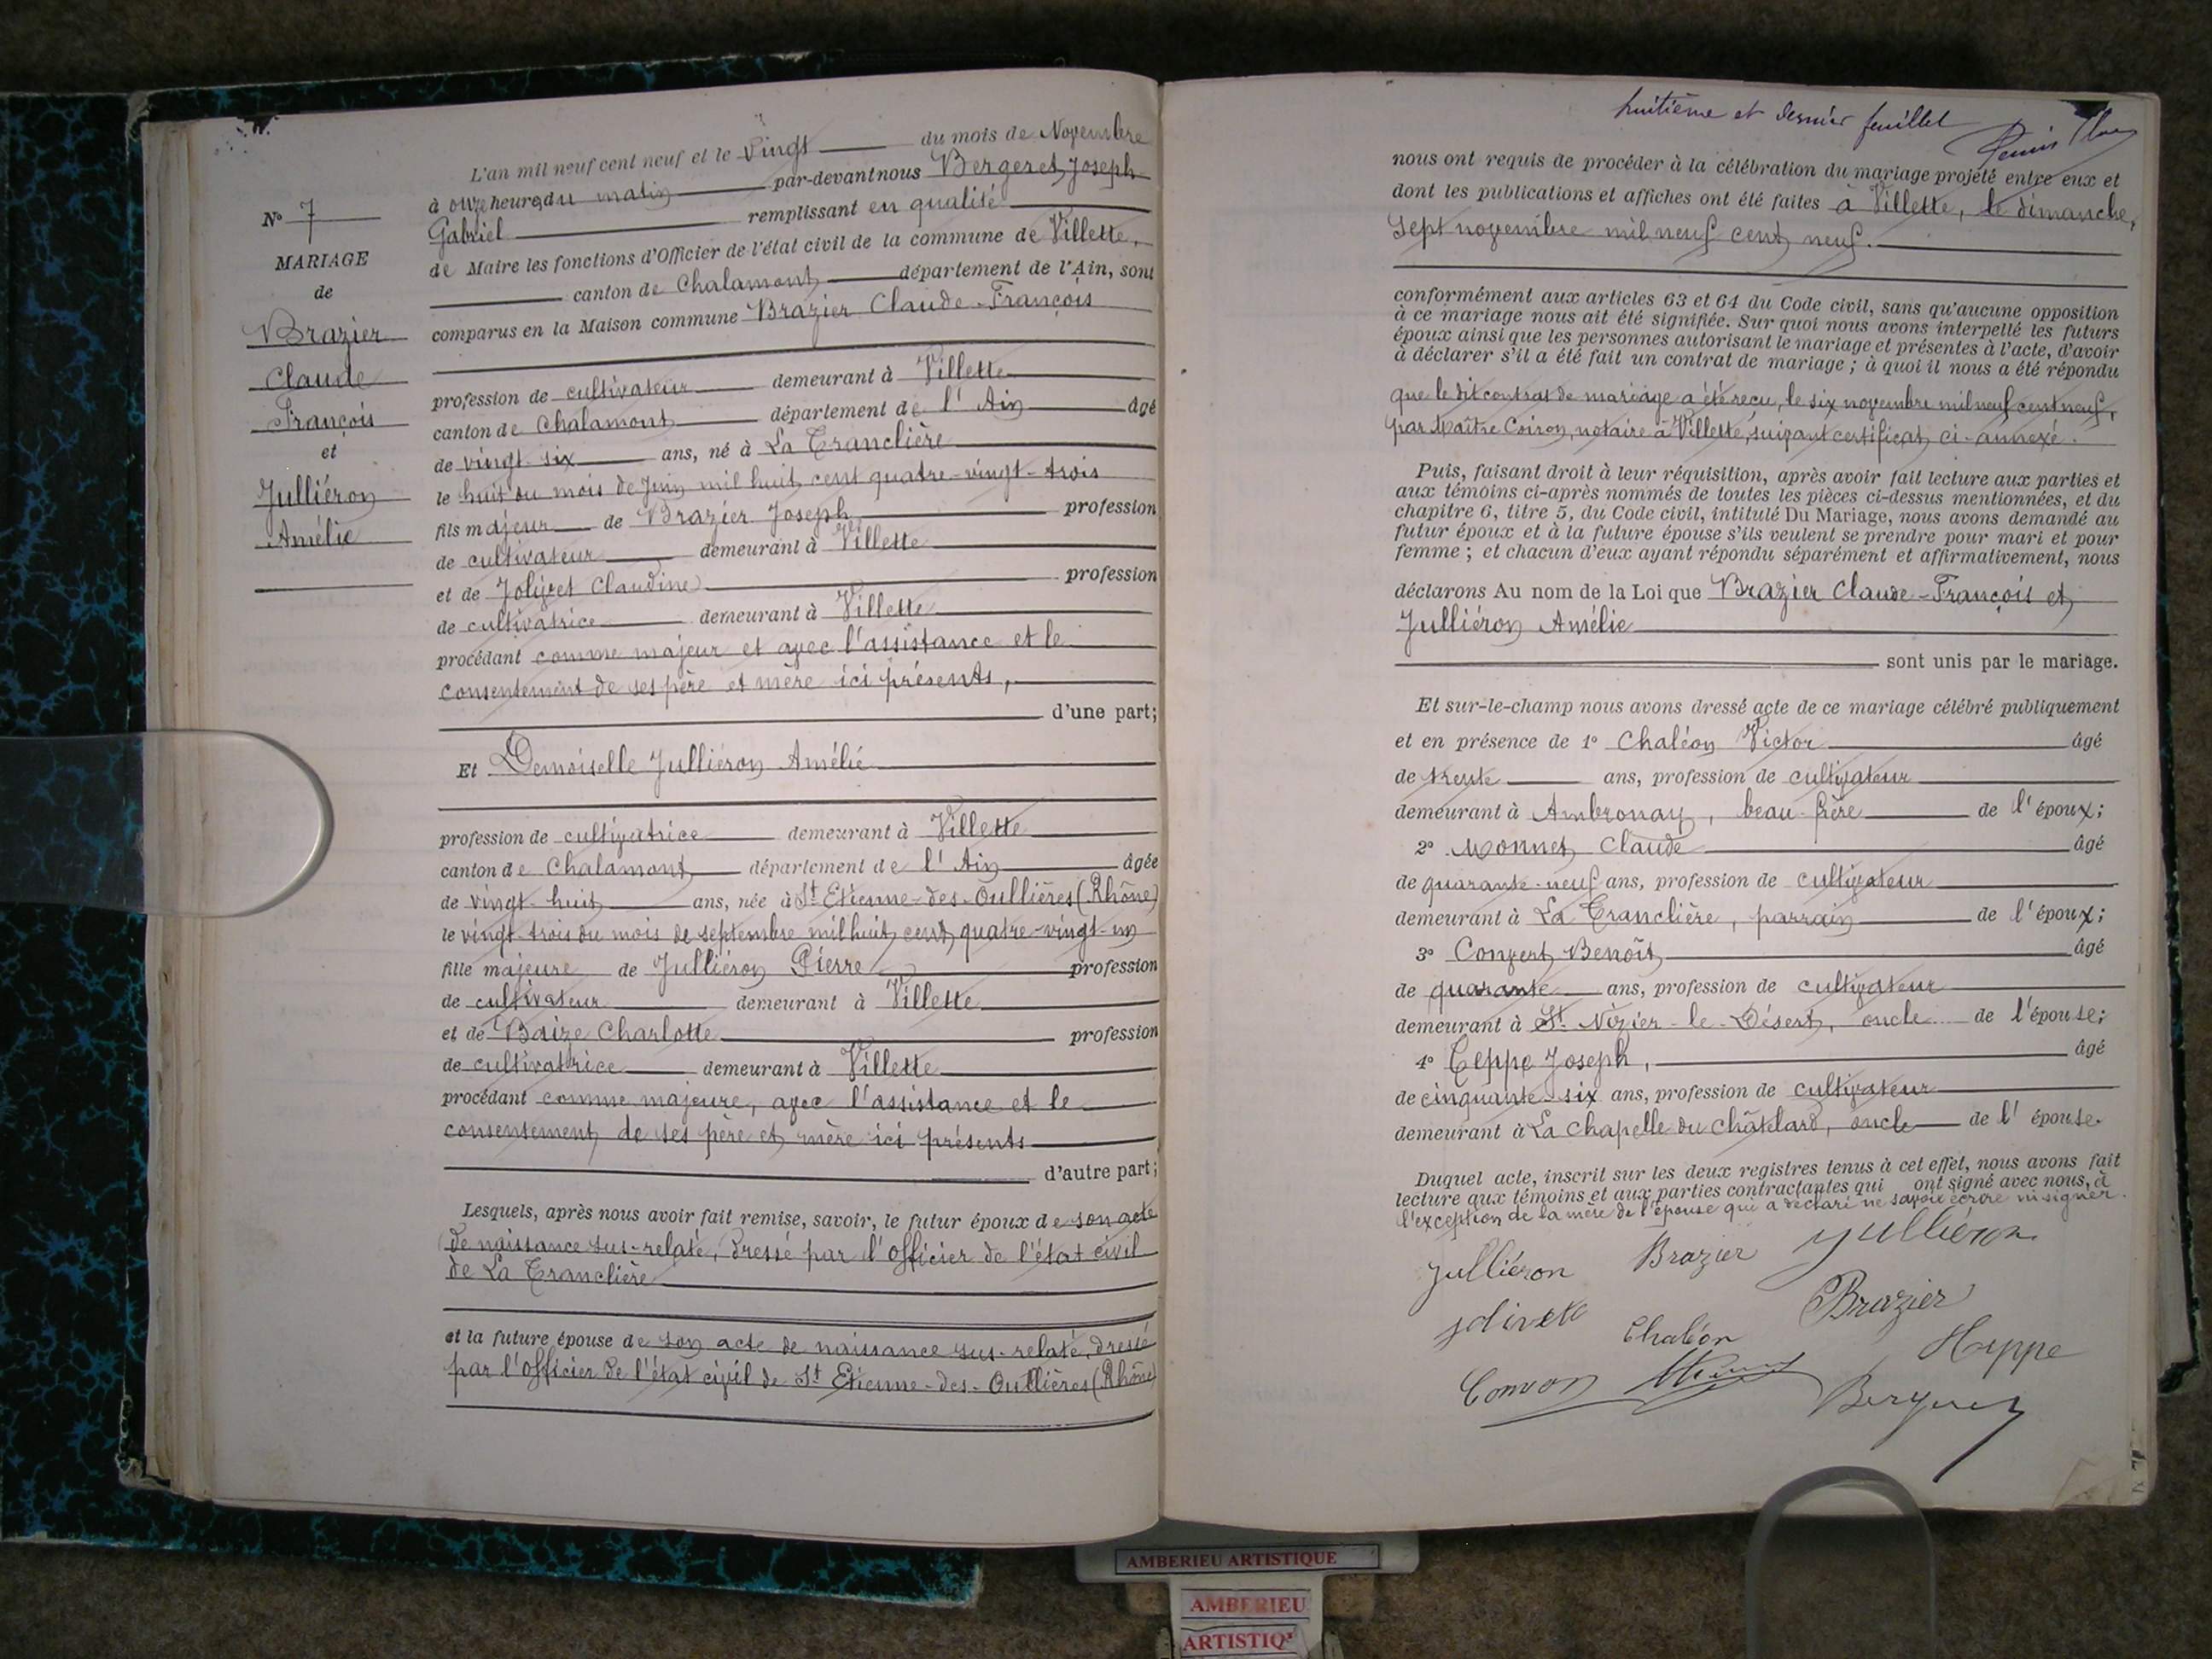 N° 7
MARIAGE
de
Brazier
Claude
François
et
Julliéron
Amélie
L'an mil neuf cent neuf et le vingt du mois de Novembre
à onze heures du matin par-devant nous Bergeret Joseph
Gabriel remplissant en qualité
de Maire les fonctions d'Officier de l'état civil de la commune de Villette,
canton de Chalamont département de l'Ain, sont
comparus en la Maison commune Brazier Claude-François
profession de cultivateur demeurant à Villette
canton de Chalamont département de l'Ain âgé
de vingt-six ans, né à La Tranclière
le huit du mois de Juin mil huit cent quatre-vingt-trois
fils majeur de Brazier Joseph profession
de cultivateur demeurant à Villette
et de Jolivet Claudine profession
de cultivatrice demeurant à Villette
procédant comme majeur et avec l'assistance et le
consentement de ses père et mère ici présents,
d'une part;
Et Demoiselle Julliéron Amélie
profession de cultivatrice demeurant à Villette
canton de Chalamont département de l'Ain âgée
de vingt-huit ans, née à St Etienne-des-Oullières (Rhône)
le vingt-trois du mois de septembre mil huit cent quatre-vingt-un
fille majeure de Julliéron Pierre profession
de cultivateur demeurant à Villette
et de Baize Charlotte profession
de cultivatrice demeurant à Villette
procédant comme majeure, avec l'assistance et le
consentement de ses père et mère ici présents
d'autre part;
Lesquels, après nous avoir fait remise, savoir, le futur époux de son acte
de naissance sus-relaté, dressé par l'officier de l'état civil
de La Tranclière
et la future épouse de son acte de naissance sus-relaté, dressé
par l'officier de l'état civil de St Etienne-des-Oullières (Rhône)
huitième et dernier feuillet
nous ont requis de procéder à la célébration du mariage projeté entre eux et
dont les publications et affiches ont été faites à Villette, le dimanche,
sept novembre mil neuf cent neuf.
conformément aux articles 63 et 64 du Code civil, sans qu'aucune opposition
à ce mariage nous ait été signifiée. Sur quoi nous avons interpellé les futurs
époux ainsi que les personnes autorisant le mariage et présentes à l'acte, d'avoir
à déclarer s'il a été fait un contrat de mariage ; à quoi il nous a été répondu
que le dit contrat de mariage a été reçu, le six novembre mil neuf cent neuf,
par Maître Coiron, notaire à Villette, suivant certificat ci-annexé.
Puis, faisant droit à leur réquisition, après avoir fait lecture aux parties et
aux témoins ci-après nommés de toutes les pièces ci-dessus mentionnées, et du
chapitre 6, titre 5, du Code civil, intitulé Du Mariage, nous avons demandé au
futur époux et à la future épouse s'ils veulent se prendre pour mari et pour
femme ; et chacun d'eux ayant répondu séparément et affirmativement, nous
déclarons Au nom de la Loi que Brazier Claude-François et
Julliéron Amélie
sont unis par le mariage.
Et sur-le-champ nous avons dressé acte de ce mariage célébré publiquement
et en présence de 1° Chaléon Victor âgé
de trente ans, profession de cultivateur
demeurant à Ambronay, beau-frère de l'époux;
2° Monnet Claude âgé
de quarante-neuf ans, profession de cultivateur
demeurant à La Tranclière, parrain de l'époux;
3° Convert Benoît âgé
de quarante ans, profession de cultivateur
demeurant à St Nizier-le-Désert, oncle de l'épouse;
4° Teppe Joseph, âgé
de cinquante-six ans, profession de cultivateur
demeurant à La Chapelle du Châtelard, oncle de l'épouse.
Duquel acte, inscrit sur les deux registres tenus à cet effet, nous avons fait
lecture aux témoins et aux parties contractantes qui ont signé avec nous, à
l'exception de la mère de l'épouse qui a déclaré ne savoir écrire ni signer.
Julliéron Brazier Julliéron
Brazier
Chaléon
Bergeret
AMBERIEU ARTISTIQUE
AMBERIEU
ARTISTIQ